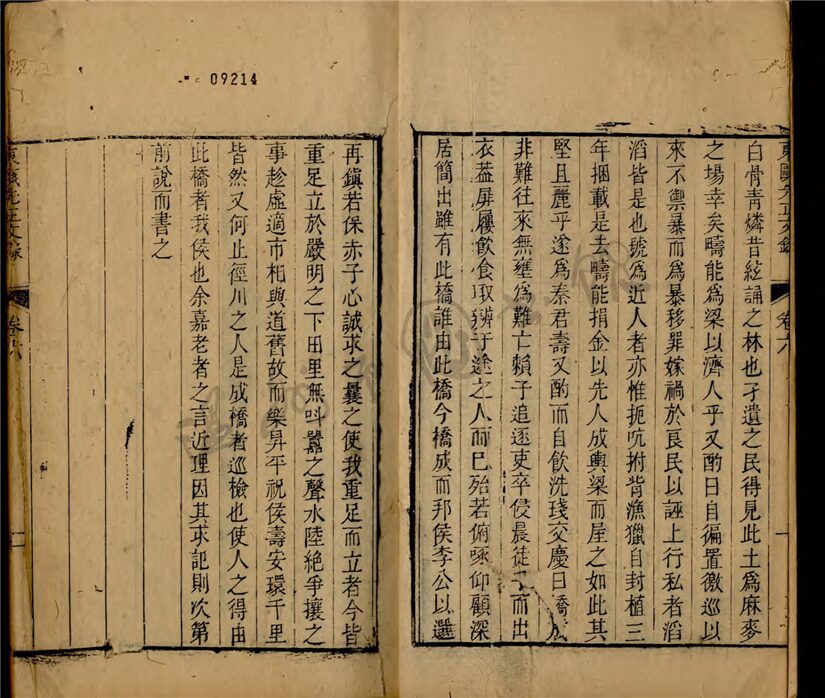 09214
東甌先正文錄 卷六
白骨青燐昔絃誦之林也孑遺之民得見此土爲麻麥
之場幸矣疇能爲梁以濟人乎又酌曰自徧置徼巡以
來不禦暴而爲暴移罪嫁禍於良民以誣上行私者滔
滔皆是也號爲近人者亦惟扼吭拊背漁獵自封植三
年捆載是去疇能捐金以先人成輿梁而屋之如此其
堅且麗乎遂爲秦君壽又酌而自飲洗琖交慶曰橋成
非難往來無壅爲難亡賴子追逐吏卒侵晨徒工而出
衣蓋屏屨飲食取辨于途之人而巳殆若俯啄仰顧深
居簡出雖有此橋誰由此橋今橋成而邦侯李公以選
再鎭若保赤子心誠求之曩之使我重足而立者今皆
重足立於嚴明之下田里無呌囂之聲水陸絶爭攘之
事趁虛適市相與道舊故而樂昇平祝侯壽安環千里
皆然又何止徑川之人是成橋者巡檢也使人之得由
此橋者我侯也余嘉老者之言近理因其求記則次第
前說而書之
東甌先正文錄 卷六